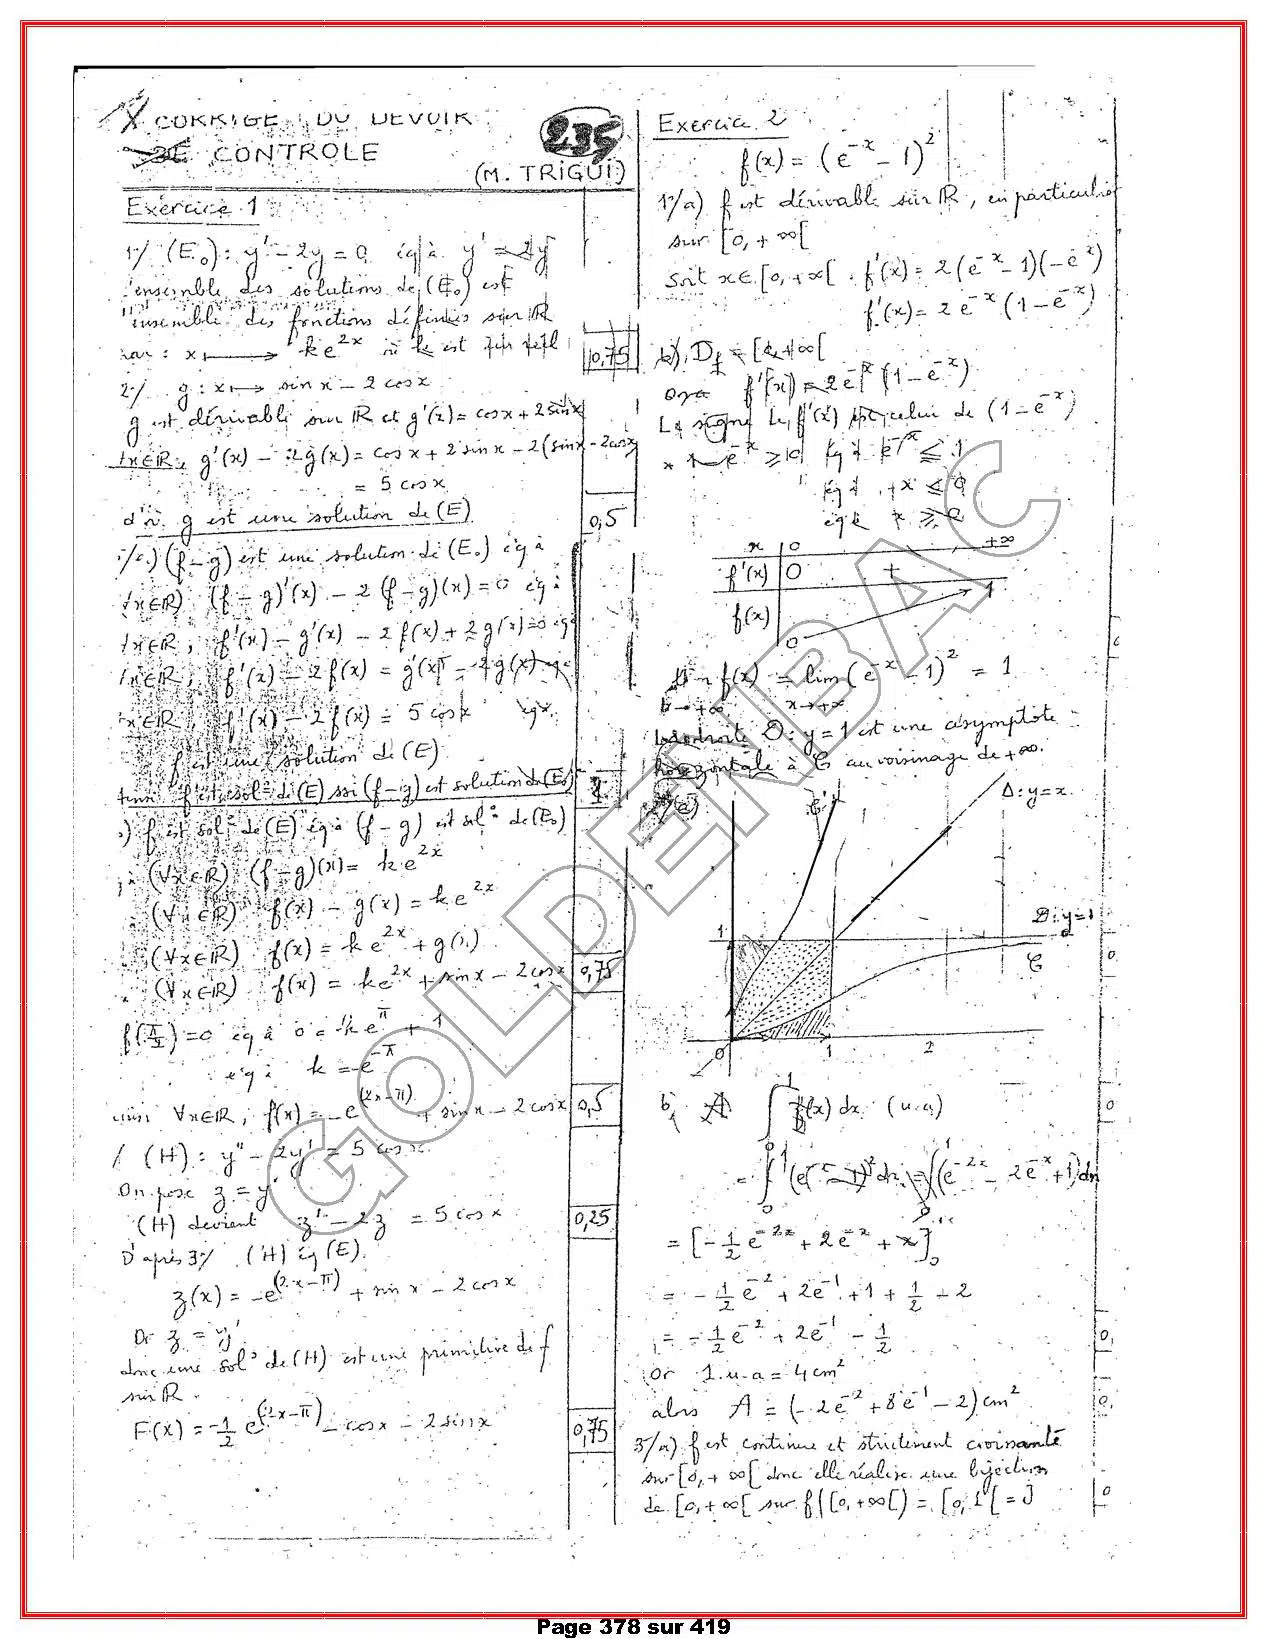 CORRIGE DU DEVOIR
DE CONTROLE
235
(M. TRIGUI)
Exercice 1
1°/ (E₀): y' - 2y = 0 éq à y' = 2y
l'ensemble des solutions de (E₀) est
l'ensemble des fonctions définies sur ℝ
par : x ⟼ k e^{2x} où k est
0,75
2°/ g : x ⟼ sin x - 2 cos x
g est dérivable sur ℝ et g'(x) = cos x + 2 sin x
∀x∈ℝ, g'(x) - 2g(x) = cos x + 2 sin x - 2(sin x - 2cos x
= 5 cos x
d'où g est une solution de (E)
0,5
(f-g) est une solution de (E₀) éq à
∀x∈ℝ, (f-g)'(x) - 2(f-g)(x) = 0 éq à
∀x∈ℝ, f'(x) - g'(x) - 2f(x) + 2g(x) = 0 éq à
∀x∈ℝ, f'(x) - 2f(x) = g'(x) - 2g(x)
∀x∈ℝ, f'(x) - 2f(x) = 5 cos x
f est une solution de (E)
ainsi f est sol° de (E) ssi (f-g) est solution de (E₀)
1
) f est sol° de (E) éq à (f-g) est sol° de (E₀)
(∀x∈ℝ) (f-g)(x) = k e^{2x}
(∀x∈ℝ) f(x) - g(x) = k e^{2x}
(∀x∈ℝ) f(x) = k e^{2x} + g(x)
(∀x∈ℝ) f(x) = k e^{2x} + sin x - 2 cos x
0,75
f(π/2) = 0 éq à 0 = k e^{π} + 1
éq à k = -e^{-π}
ainsi ∀x∈ℝ, f(x) = -e^{(2x-π)} + sin x - 2 cos x
0,5
/ (H) : y'' - 2y' = 5 cos x
On pose z = y'
(H) devient z' - 2z = 5 cos x
0,25
D'après 3°/ (H) éq (E)
z(x) = -e^{(2x-π)} + sin x - 2 cos x
Or z = y'
donc une sol° de (H) est une primitive de f
sur ℝ.
F(x) = -1/2 e^{(2x-π)} - cos x - 2 sin x
0,75
Exercice 2
f(x) = (e^{-x} - 1)²
1°/a) f est dérivable sur ℝ, en particulier
sur [0, +∞[
Soit x∈[0, +∞[ . f'(x) = 2(e^{-x} - 1)(-e^{-x})
f'(x) = 2e^{-x}(1 - e^{-x})
b) D_f = [0, +∞[
On a f'(x) = 2e^{-x}(1 - e^{-x})
Le signe de f'(x) est celui de (1 - e^{-x})
* 1 - e^{-x} ≥ 0 éq à e^{-x} ≤ 1
éq à -x ≤ 0
éq à x ≥ 0
x 0 +∞
f'(x) 0 +
f(x) 0 1
lim f(x) = lim (e^{-x} - 1)² = 1
x→+∞ x→+∞
La droite D : y = 1 est une asymptote
horizontale à C au voisinage de +∞.
C'
Δ : y = x
D : y = 1
1
C
0 1 2
b) A ∫₀¹ f(x) dx (u.a)
= ∫₀¹ (e^{-x} - 1)² dx = ∫₀¹ (e^{-2x} - 2e^{-x} + 1) dx
= [-1/2 e^{-2x} + 2e^{-x} + x]₀¹
= -1/2 e^{-2} + 2e^{-1} + 1 + 1/2 - 2
= -1/2 e^{-2} + 2e^{-1} - 1/2
Or 1.u.a = 4 cm²
alors A = (-2e^{-2} + 8e^{-1} - 2) cm²
3°/a) f est continue et strictement croissante
sur [0, +∞[ donc elle réalise une bijection
de [0, +∞[ sur f([0, +∞[) = [0, 1[ = J
GOLDENBAC
Page 378 sur 419